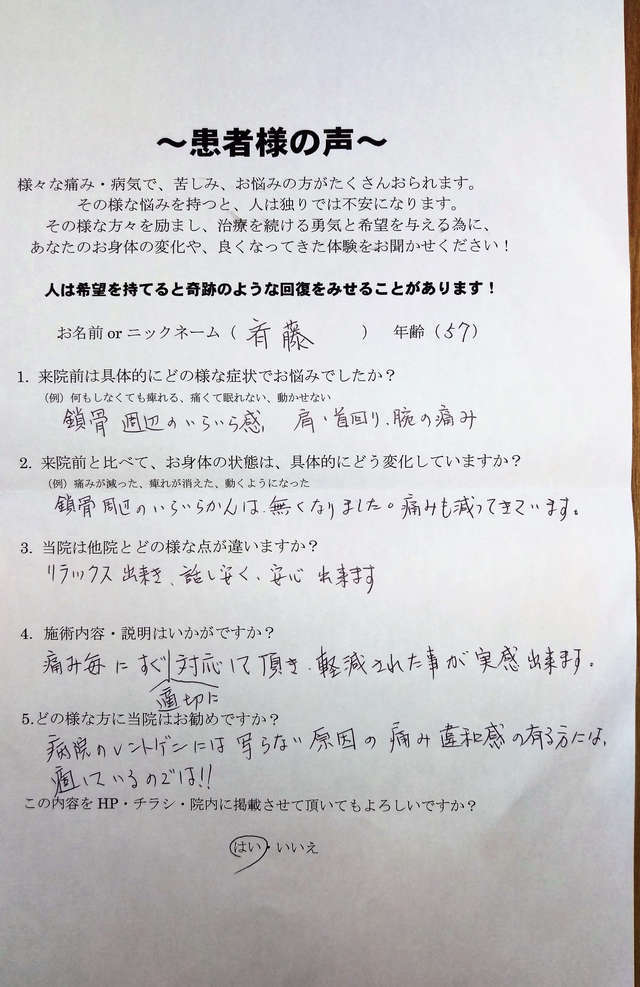 ～患者様の声～
様々な痛み・病気で、苦しみ、お悩みの方がたくさんおられます。
その様な悩みを持つと、人は独りでは不安になります。
その様な方々を励まし、治療を続ける勇気と希望を与える為に、
あなたのお身体の変化や、良くなってきた体験をお聞かせください！
人は希望を持てると奇跡のような回復をみせることがあります！
お名前 or ニックネーム（ 斉藤 ） 年齢（ 57 ）
1. 来院前は具体的にどの様な症状でお悩みでしたか？
（例）何もしなくても痺れる、痛くて眠れない、動かせない
鎖骨周辺のいらいら感、肩、首回り、腕の痛み
2. 来院前と比べて、お身体の状態は、具体的にどう変化していますか？
（例）痛みが減った、痺れが消えた、動くようになった
鎖骨周辺のいらいらかんは、無くなりました。痛みも減ってきています。
3. 当院は他院とどの様な点が違いますか？
リラックス出来き、話し安く、安心出来ます
4. 施術内容・説明はいかがですか？
痛み毎にすぐ対応して頂き、軽減された事が実感出来ます。
適切に
5.どの様な方に当院はお勧めですか？
病院のレントゲンには写らない原因の痛み違和感の有る方には、
適しているのでは!!
この内容を HP・チラシ・院内に掲載させて頂いてもよろしいですか？
はい・いいえ